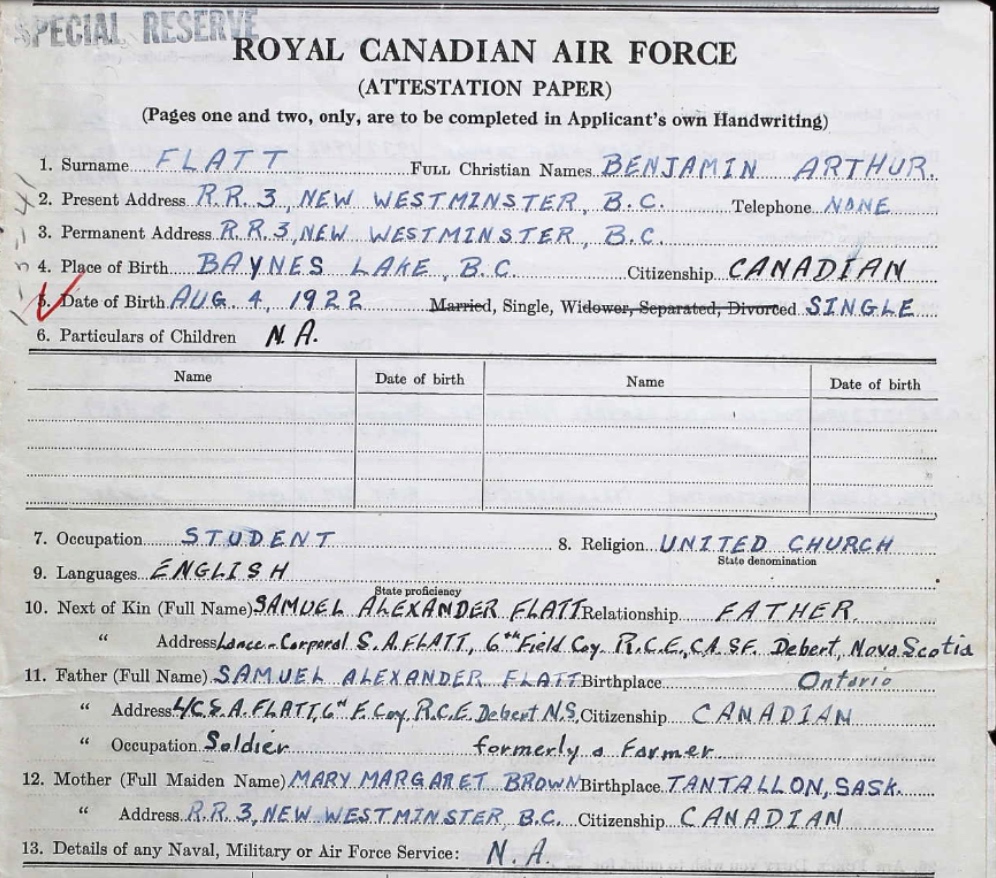 SPECIAL RESERVE
ROYAL CANADIAN AIR FORCE
(ATTESTATION PAPER)
(Pages one and two, only, are to be completed in Applicant's own Handwriting)
1. Surname FLATT FULL Christian Names BENJAMIN ARTHUR.
2. Present Address R.R.3, NEW WESTMINSTER, B.C. Telephone NONE
3. Permanent Address R.R.3, NEW WESTMINSTER, B.C.
4. Place of Birth BAYNES LAKE, B.C. Citizenship CANADIAN
5. Date of Birth AUG. 4, 1922 Married, Single, Widower, Separated, Divorced SINGLE
6. Particulars of Children N.A.
Name Date of birth Name Date of birth
7. Occupation STUDENT 8. Religion UNITED CHURCH
State denomination
9. Languages ENGLISH
State proficiency
10. Next of Kin (Full Name) SAMUEL ALEXANDER FLATT Relationship FATHER
" Address Lance-Corporal S.A.FLATT, 6th Field Coy. R.C.E., C.A.S.F. Debert, Nova Scotia
11. Father (Full Name) SAMUEL ALEXANDER FLATT Birthplace Ontario
" Address L/C S.A. FLATT, 6th F. Coy, R.C.E. Debert N.S. Citizenship CANADIAN
" Occupation Soldier formerly a Farmer
12. Mother (Full Maiden Name) MARY MARGARET BROWN Birthplace TANTALLON, SASK.
" Address R.R.3, NEW WESTMINSTER, B.C. Citizenship CANADIAN
13. Details of any Naval, Military or Air Force Service: N.A.